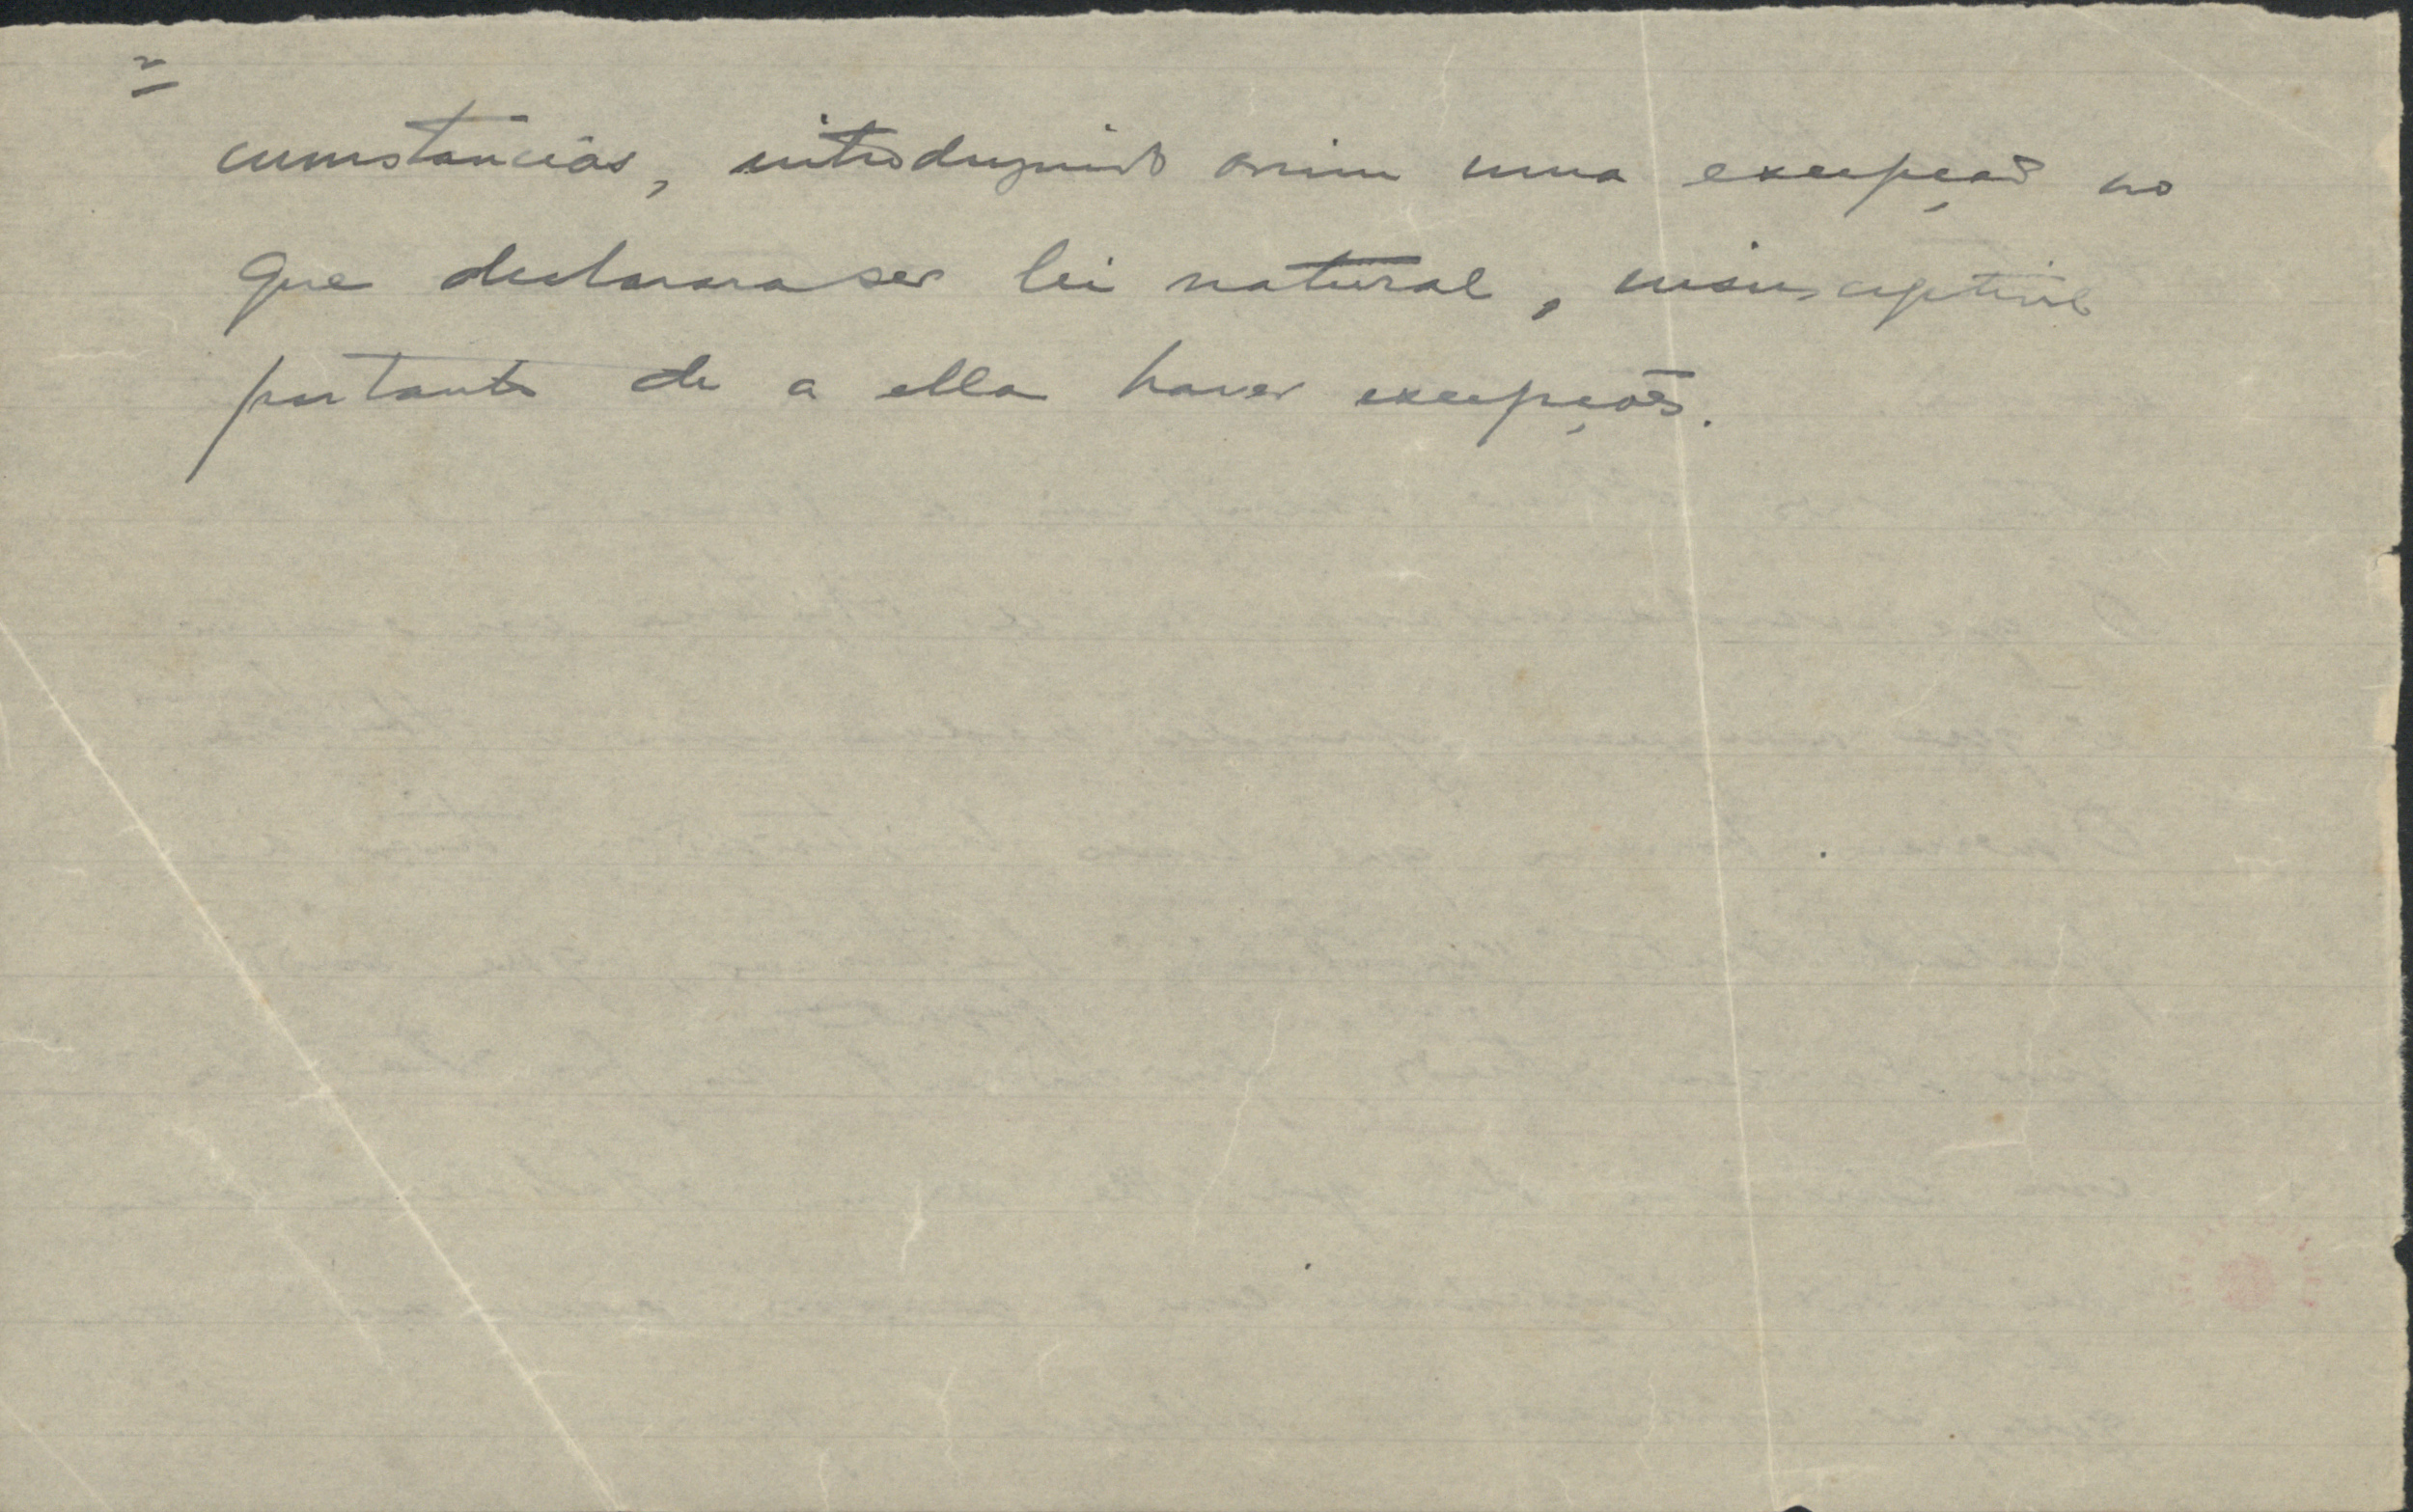 2
cumstancias, introduzindo assim uma excepção no
que declarara ser lei natural, insusceptivel
portanto de a ella haver excepções.